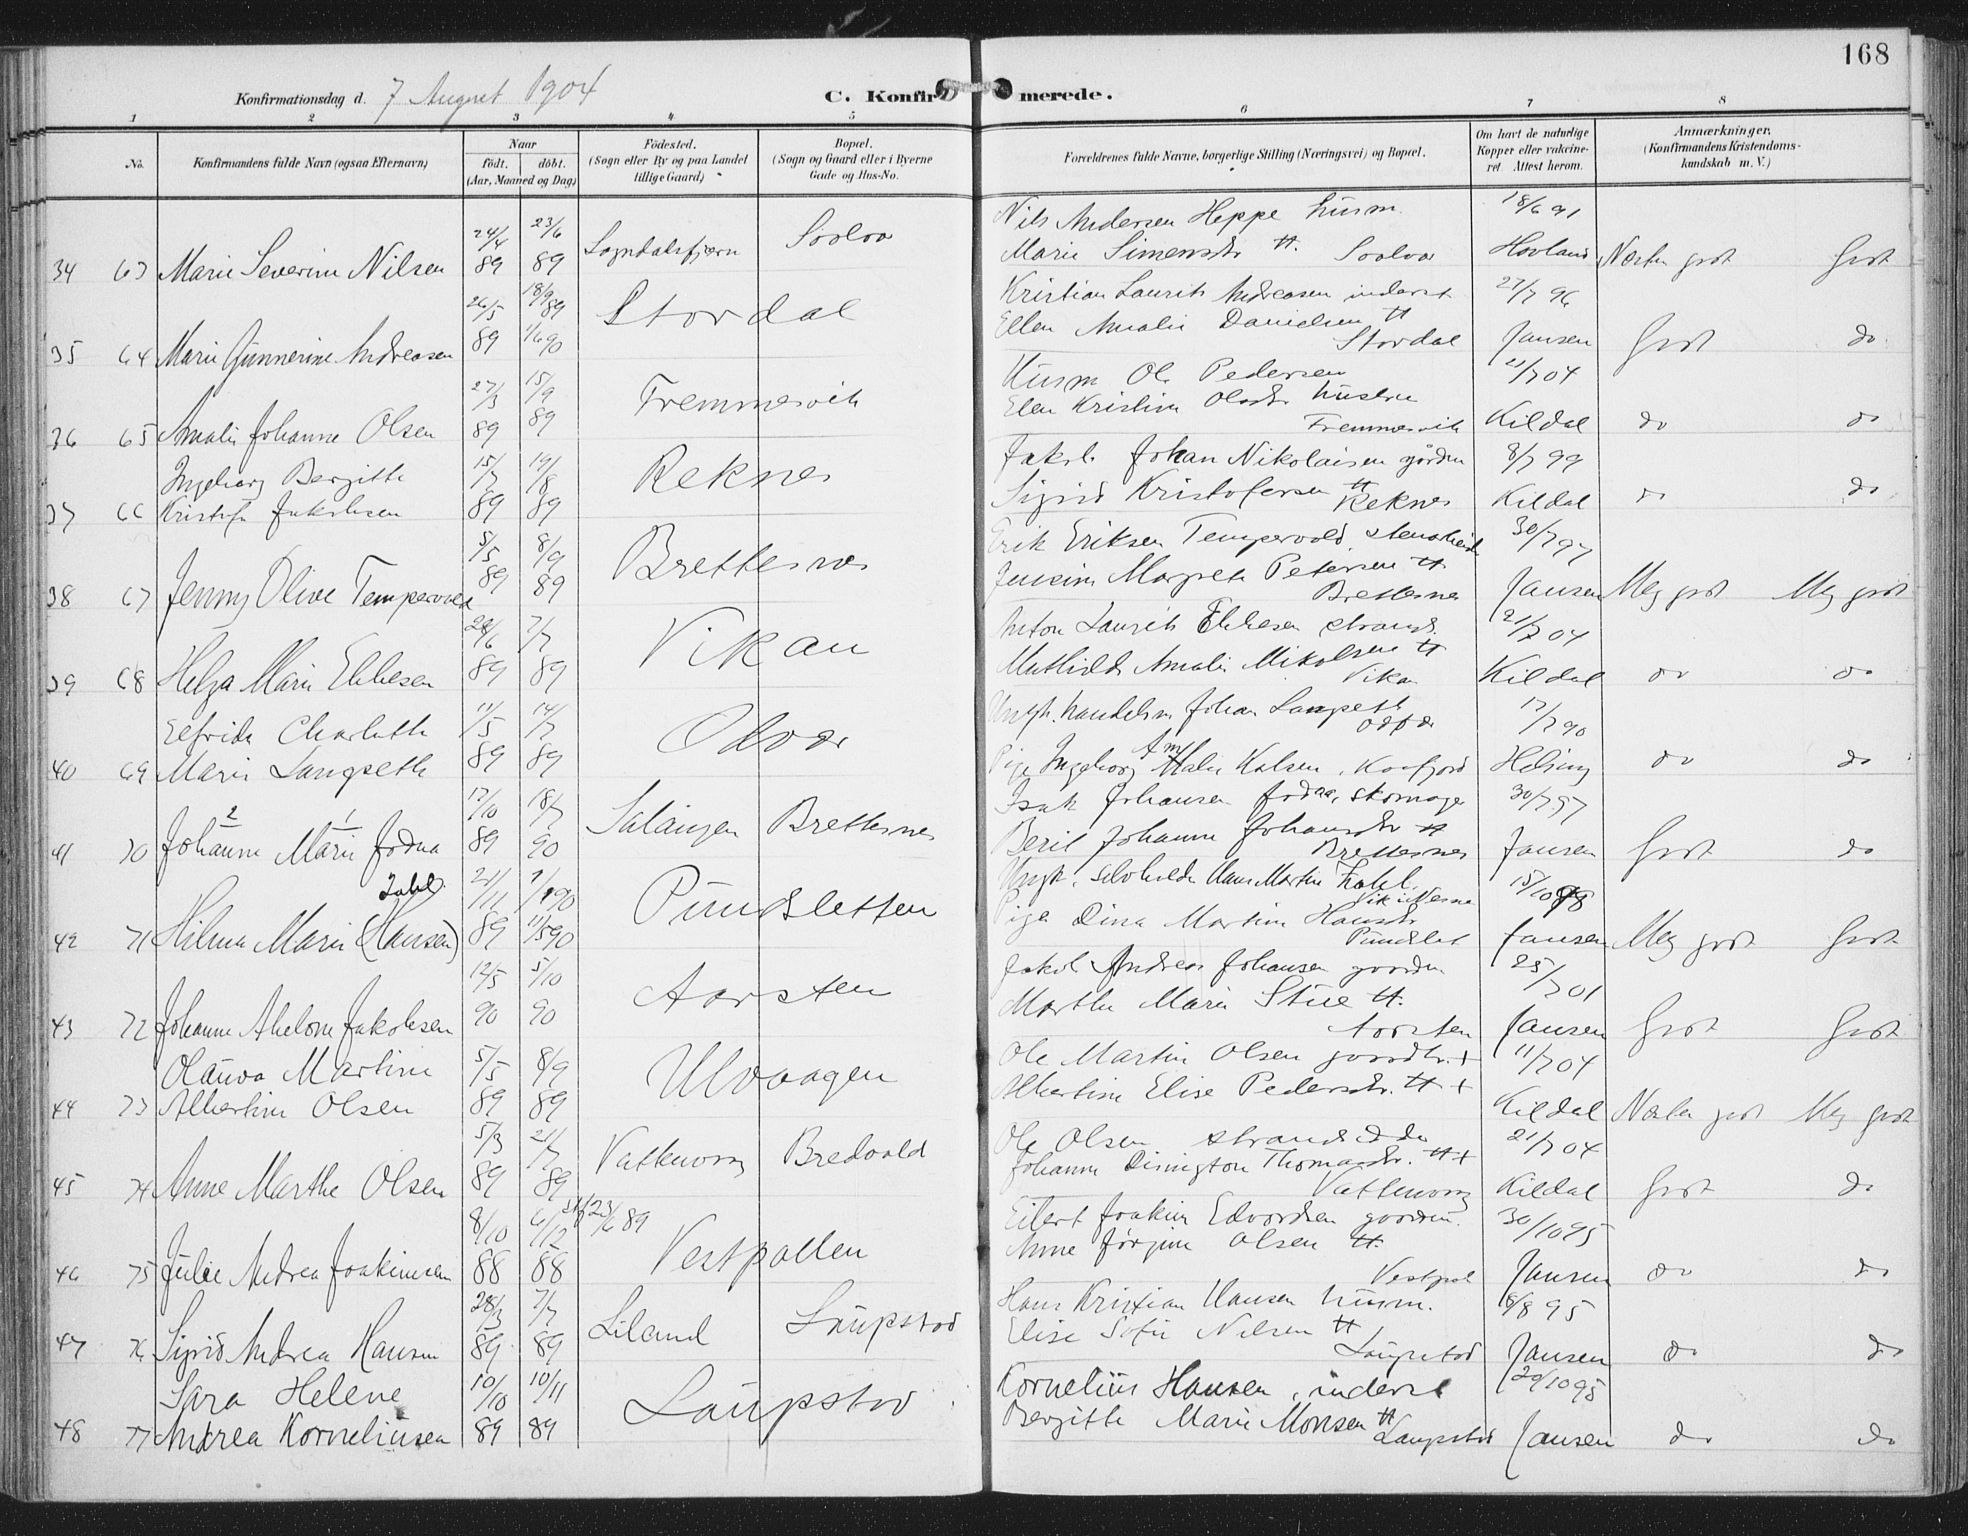 168
Konfirmationsdag d. 7 August 1904
C. Konfirmerede.
1 2 3 4 5 6 7 8
No.
Konfirmandens fulde Navn (ogsaa Efternavn)
Naar
født. døbt.
(Aar, Maaned og Dag)
Fødested.
(Sogn eller By og paa Landet
tillige Gaard)
Bopæl.
(Sogn og Gaard eller i Byerne
Gade og Hus-No.
Forældrenes fulde Navne, borgerlige Stilling (Næringsvei) og Bopæl.
Om havt de naturlige
Kopper eller vakcine-
ret Attest herom.
Anmærkninger.
(Konfirmandens Kristendoms-
kundskab m. V.)
Nils Andersen Heppe husm. 18/6 91
24/4 23/6
34 63 Marie Severine Nilsen 89 89 Sogndalsfjern Svolvær Marie Simensdr tt. Svolvær Hovland Næsten godt Godt
Kristian Laurits Andreasen inderst 27/7 96
26/5 18/9 89 Stordal
Ellen Amalie Danielsen tt
35 64 Marie Gunnerine Andreasen 89 1/6 90 Stordal Jansen Godt do
Husm Ole Pedersen 21/7 04
27/3 15/9 Fremmervik
Elen Kristine Olsdr hustru
36 65 Amalie Johanne Olsen 89 89 Fremmervik Kildal do do
Jakob Johan Nikolaisen gårdm 8/7 99
Ingeborg Bergitte 15/7 19/8 Reknes
Sigrid Kristofersen tt
37 66 Kristofa Jakobsen 89 89 Reknes Kildal do do
Erik Eriksen Tempervold, stenarbeid 30/7 97
5/5 8/9 Brettesnes
Jensine Margrete Petersen tt
38 67 Jenny Olive Tempervold 89 89 Brettesnes Jansen Meg godt Meg godt
Anton Laurits Ebbesen strands. 21/7 04
28/6 7/7 Vikan
Mathilde Amalie Mikalsen tt
39 68 Helga Marie Ebbesen 89 89 Vikan Kildal do do
Ungk. handelsm Johan Langseth 17/7 90
Elfrida Charlotte 11/5 14/7 Odvær
40 69 Marie Langseth 89 89 Pige Ingeborg Amalie Kalsen, Kanfjord Helsing do do
Isak Johansen Jodaa, skomager 30/7 97
17/10 18/7
Beril Johanne Johansdr tt
41 70 Johanne 2 Marie 1 Jodna 89 90 Salangen Brettesnes Brettesnes Jansen Godt do
Ungk. selvholder Hans Martin Zahl. 15/10 98
Zahl 21/11 1/1 90 Pundsletten
42 71 Hilma Marie (Hansen) 89 11/5 90 Pige Dina Martine Hansdr Pundslet Jansen Meg godt Godt
Jakob Andreas Johansen gaardm 25/7 01
12/5 5/10 Aarsten
Marthe Marie Stüe tt.
43 72 Johanne Abelone Jakobsen 90 90 Aarsten Jansen Godt Godt
Ole Martin Olsen gaardbr. + 11/7 04
Olauva Martine 5/5 8/9 Ulvaagen
44 73 Albertine Olsen 89 89 Albertine Elise Pedersdr. tt + Kildal Næsten godt Meg godt
Ole Olsen strandsidder 21/7 04
5/3 21/7
Johanne Dinington Thomasdr. tt +
45 74 Anne Marthe Olsen 89 89 Vattenvorg Bredvold Vattenvorg Kildal Godt do
Eilert Joakim Edvardsen gaardm. 30/10 95
8/10 6/12 st 23/6 89 Vestpollen
Anne Jørgine Olsen tt.
46 75 Julie Andrea Joakimsen 88 88 Vestpol Jansen do do
Hans Kristian Hansen husm. 18/8 95
28/3 7/7
Elise Sofie Nilsen tt
47 76 Sigrid Andrea Hansen 89 89 Liland Laupstad Laupstad Jansen do do
Sara Helene 10/10 10/11 Laupstad Kornelius Hansen, inderst 29/10 95
Bergitte Marie Monsen tt
48 77 Andrea Korneliusen 89 89 Laupstad Jansen do do